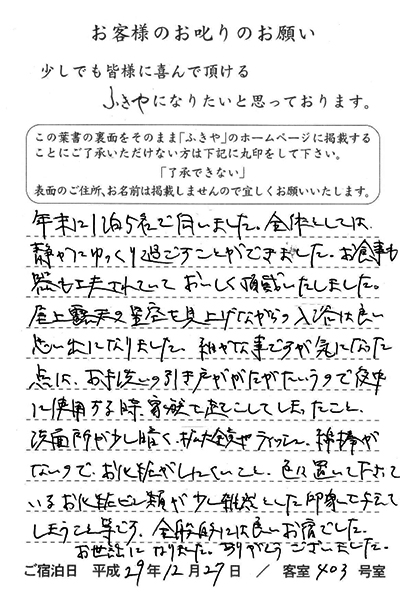 お客様のお叱りのお願い
少しでも皆様に喜んで頂ける
ふきやになりたいと思っております。
この葉書の裏面をそのまま「ふきや」のホームページに掲載する
ことにご了承いただけない方は下記に丸印をして下さい。
「了承できない」
表面のご住所、お名前は掲載しませんので宜しくお願いいたします。
年末に1泊5名で伺いました。全体としては
静かにゆっくり過ごすことができました。お食事も
器も工夫されていておいしく頂戴いたしました。
屋上露天の星空を見上げながらの入浴は良い
思い出になりました。細かな事ですが気になった
点は、お手洗いの引き戸ががたがたいうので夜中
に使用する時、家族を起こしてしまったこと。
洗面所が少し暗く、拡大鏡やティッシュ、綿棒が
ないので、お化粧がしにくいこと。色々置いて下さって
いるお化粧ビン類が少し雑然とした印象を与えて
しまうこと等です。全般的には良いお宿でした。
お世話になりました。ありがとうございました。
ご宿泊日 平成29年12月27日 / 客室403号室